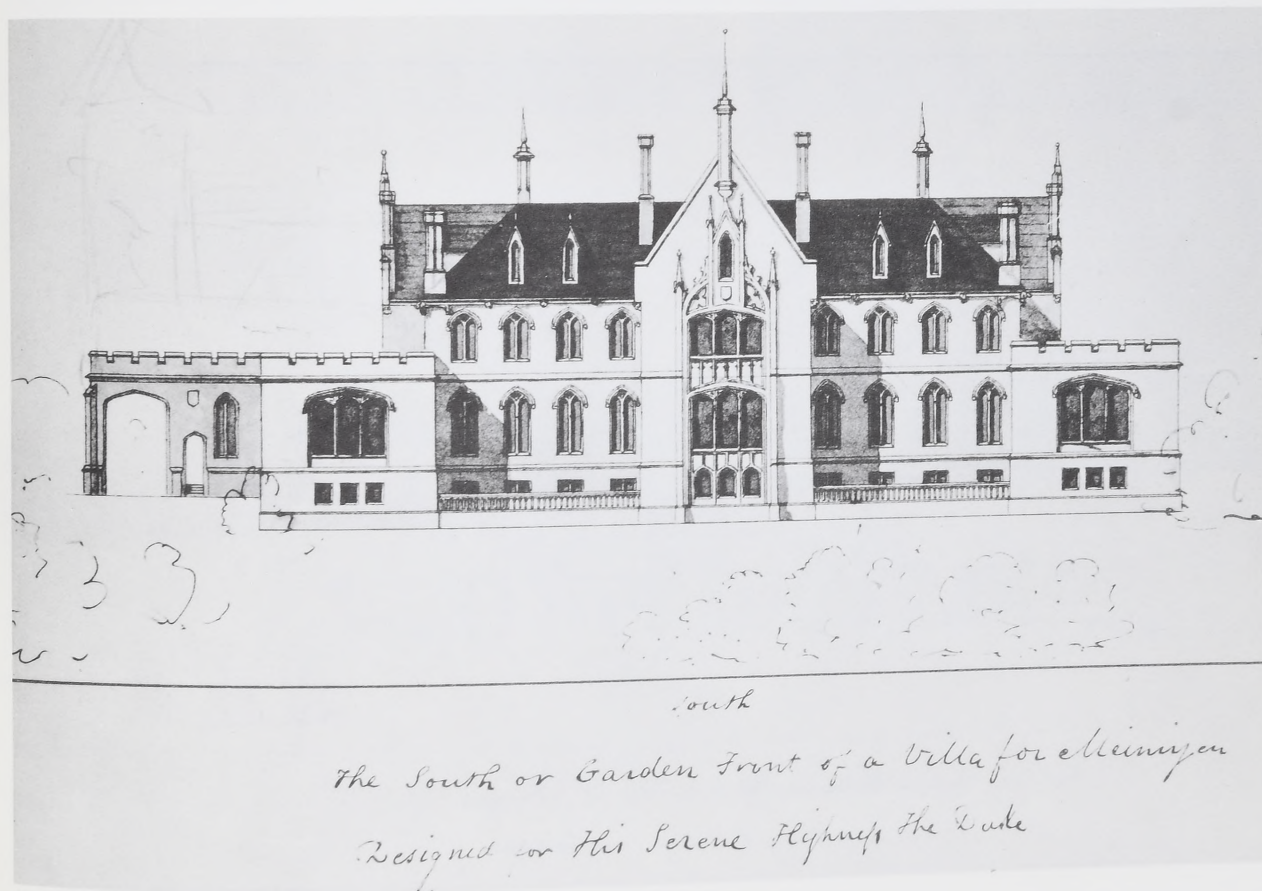 South
The South or Garden Front of a Villa for Meiningen
Designed for His Serene Highneſs the Duke